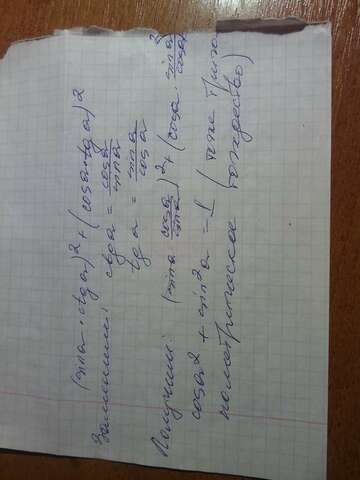 (sina · ctga)² + (cosa · tga)²
Заменим:
ctga = cosa/sina
tga = sina/cosa
Получим: (sina · cosa/sina)² + (cosa · sina/cosa)²
cosa² + sin²a = 1 (тоже триго
нометрическое тождество)